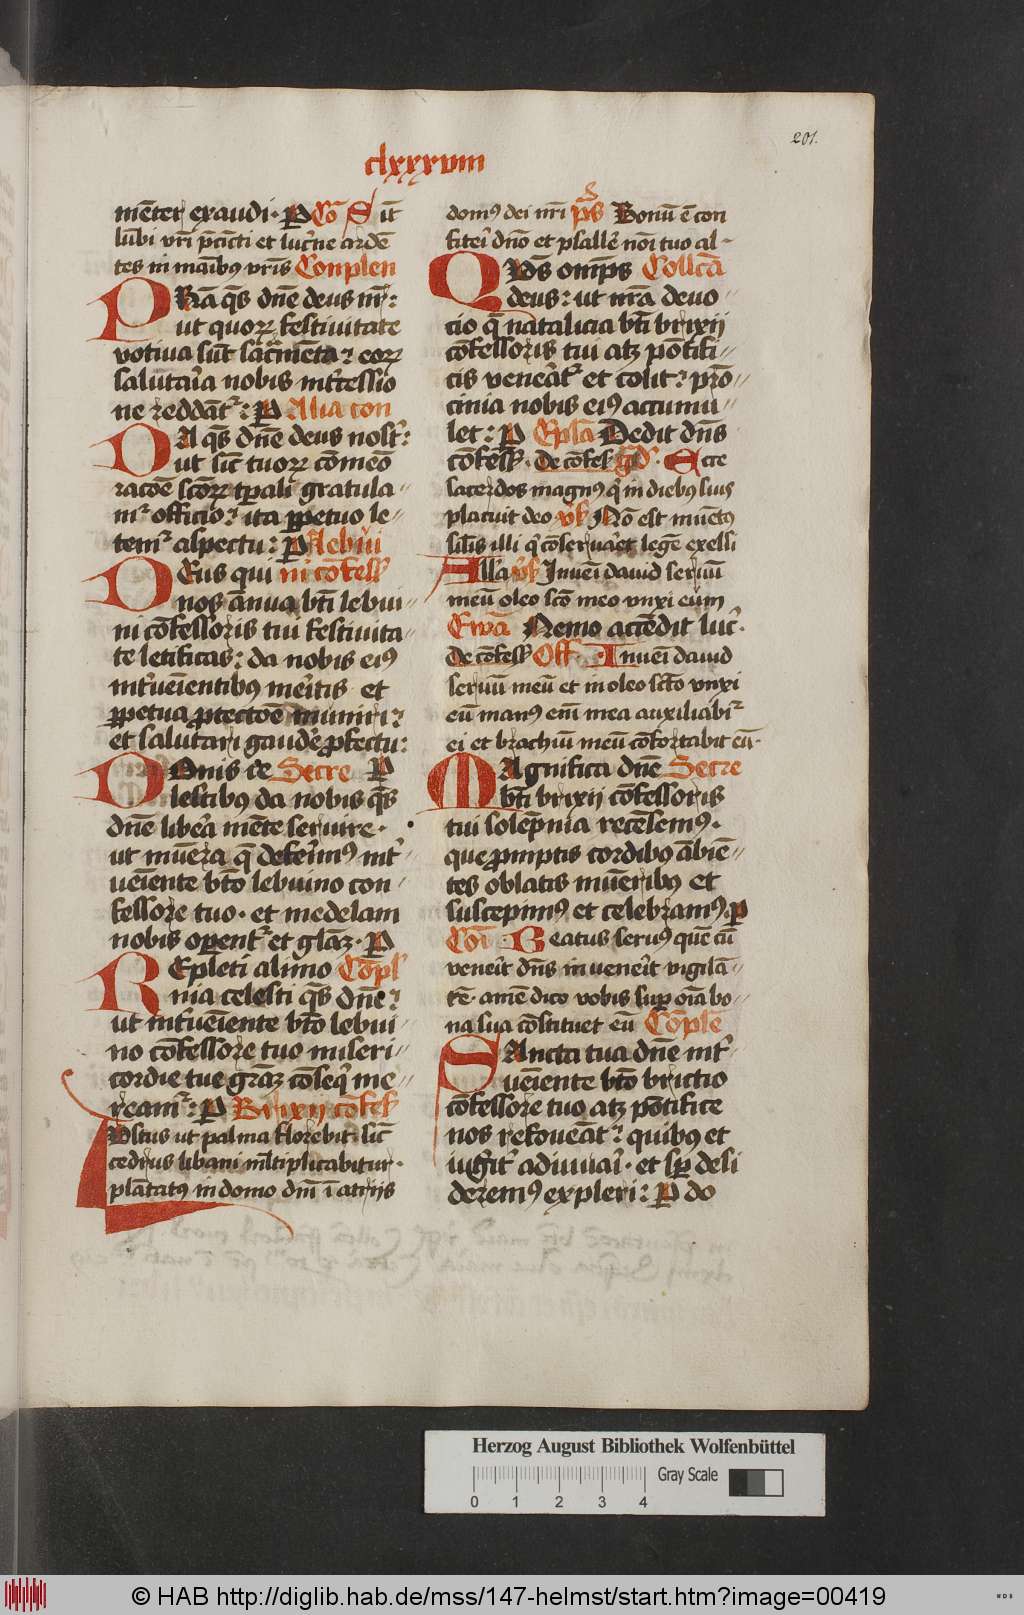 201.
clxxxviii
mēter exaudi · P Cō Sīt
lūbi vr̄i p̄cīcti et lucr̄ne ardē
tes in manībꝰ vr̄is Conplen
PRā qs̄ dn̄e deus nr̄:
ut quorꝝ festiuitate
votiua sūt sac̄mēta: eorꝝ
salutar̄ia nobis int̄cessio
ne reddātᷣ: P Alia con
DA qs̄ dn̄e deus nost̄:
ut sic̄ tuorꝝ cōmeō
racōe sc̄orꝝ tp̄ali gratula-
mᷣ officio: ita ꝑpetuo le-
temᷣ aspectu: P Lebuī
DEus qui ni cōfess̄
nos ānua bt̄i lebui-
ni cōfessoris tui festiuita-
te letificas: da nobis eiꝰ
int̄ueīentibꝰ mer̄itis et
ꝑpetua ꝓtectōe muniri:
et salutari gaudē ꝓfectu:
DOnis ce Secre P
lestibꝰ da nobis qs̄
dn̄e liber̄a mēte seruire ·
ut mūera q̄ defer̄imꝰ int̄
ueīente bt̄o lebuino con-
fessore tuo · et medelam
nobis oꝑentᷣ et glāꝫ · P
REpleti alimo Cōpl
nia celesti qs̄ dn̄e:
ut int̄ueīente bt̄o lebui-
no cōfessore tuo miseri-
cordie tue grāꝫ cōseq̄ me-
reamᷣ: P Brixij cōfes̄
IVstus ut palma florebit · sic̄
cedrus libani ml̄tiplicabitur ·
plātatꝰ in domo dn̄i ī atrijs
domꝰ dei nr̄i p̄s Bonū ē con
fiter̄i dn̄o et psallē noī tuo al-
QVds̄ omīps Collcā
deus: ut nr̄a deuo-
cio q̄ natalicia bt̄i brixij
cōfessoris tui atqꝫ pōtifi-
cis venerātᷣ et colit: prō-
cinia nobis eiꝰ accumu-
let: P Eplā Dedit dn̄s
cōfess̄ · de cōfes̄ gd̄ · Ecce
sacerdos magnꝰ q̄ in diebꝰ suis
placuit deo v̄s Nō est inuētꝰ
sil̄is illi q̄ cōseruaret legē exelsi
All̄a v̄s Inuēi dauid seruū
meū oleo scō meo vnxi eūm
Ewā Nemo accēdit luc̄ ·
De cōfess̄ Off Inuēi dauid
seruū meū et in oleo scō vnxi
eū manꝰ enī mea auxiliabiᷣ
ei et brachiū meū cōfortabit eū ·
MAgnifica dn̄e Secre
bt̄i brixij cōfessoris
tui solēpnia recēsemꝰ ·
que ꝓmptis cordibꝰ ābiē-
tes oblatis mūeribꝰ et
suscepimꝰ et celebramꝰ P
Cōi Beatus seruꝰ quē cū
venerit dn̄s inuenerit vigilā-
tē · amē dico vobis suꝑ oīa bo-
na sua cōstituet eū Cōplē
SAncta tua dn̄e int̄
ueīente bt̄o brictio
cōfessore tuo atqꝫ pōtifice
nos refoueāt: quibꝰ et
iugit̄ adiuuari · et sꝑ desi
deremꝰ expleri: P do
Herzog August Bibliothek Wolfenbüttel
Gray Scale
0 1 2 3 4
© HAB http://diglib.hab.de/mss/147-helmst/start.htm?image=00419